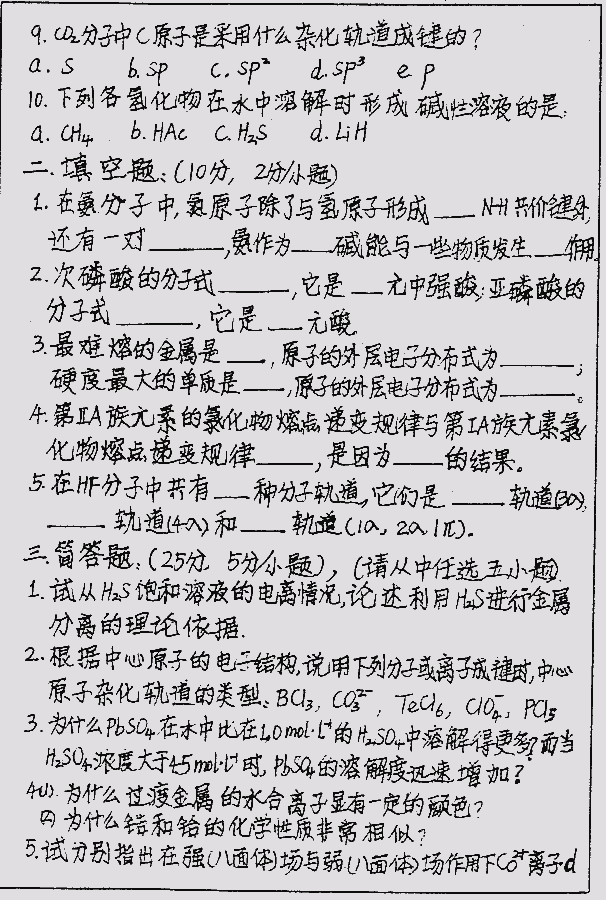 9. CO₂分子中C原子是采用什么杂化轨道成键的？
a. S b. sp c. sp² d. sp³ e p
10. 下列各氢化物在水中溶解时形成碱性溶液的是:
a. CH₄ b. HAc c. H₂S d. LiH
二. 填空题:(10分, 2分/小题)
1. 在氨分子中,氮原子除了与氢原子形成____N-H共价键外,
还有一对______,氨作为___碱能与一些物质发生___作用.
2. 次磷酸的分子式______,它是___元中强酸;亚磷酸的
分子式______,它是___元酸.
3. 最难熔的金属是___,原子的外层电子分布式为______;
硬度最大的单质是___,原子的外层电子分布式为______。
4. 第ⅡA族元素的氯化物熔点递变规律与第ⅠA族元素氯
化物熔点递变规律_____,是因为____的结果。
5. 在HF分子中共有___种分子轨道,它们是____轨道(3σ),
____轨道(4σ)和___轨道(1σ, 2σ, 1π).
三. 简答题:(25分, 5分/小题), (请从中任选五小题)
1. 试从H₂S饱和溶液的电离情况,论述利用H₂S进行金属
分离的理论依据.
2. 根据中心原子的电子结构,说明下列分子或离子成键时,中心
原子杂化轨道的类型: BCl₃, CO₃²⁻, TeCl₆, ClO₄⁻, PCl₅
3. 为什么PbSO₄在水中比在1.0mol·L⁻¹的H₂SO₄中溶解得更多?而当
H₂SO₄浓度大于4.5mol·L⁻¹时, PbSO₄的溶解度迅速增加?
4.(1). 为什么过渡金属的水合离子显有一定的颜色?
(2) 为什么锆和铪的化学性质非常相似?
5. 试分别指出在强(八面体)场与弱(八面体)场作用下Co²⁺离子d